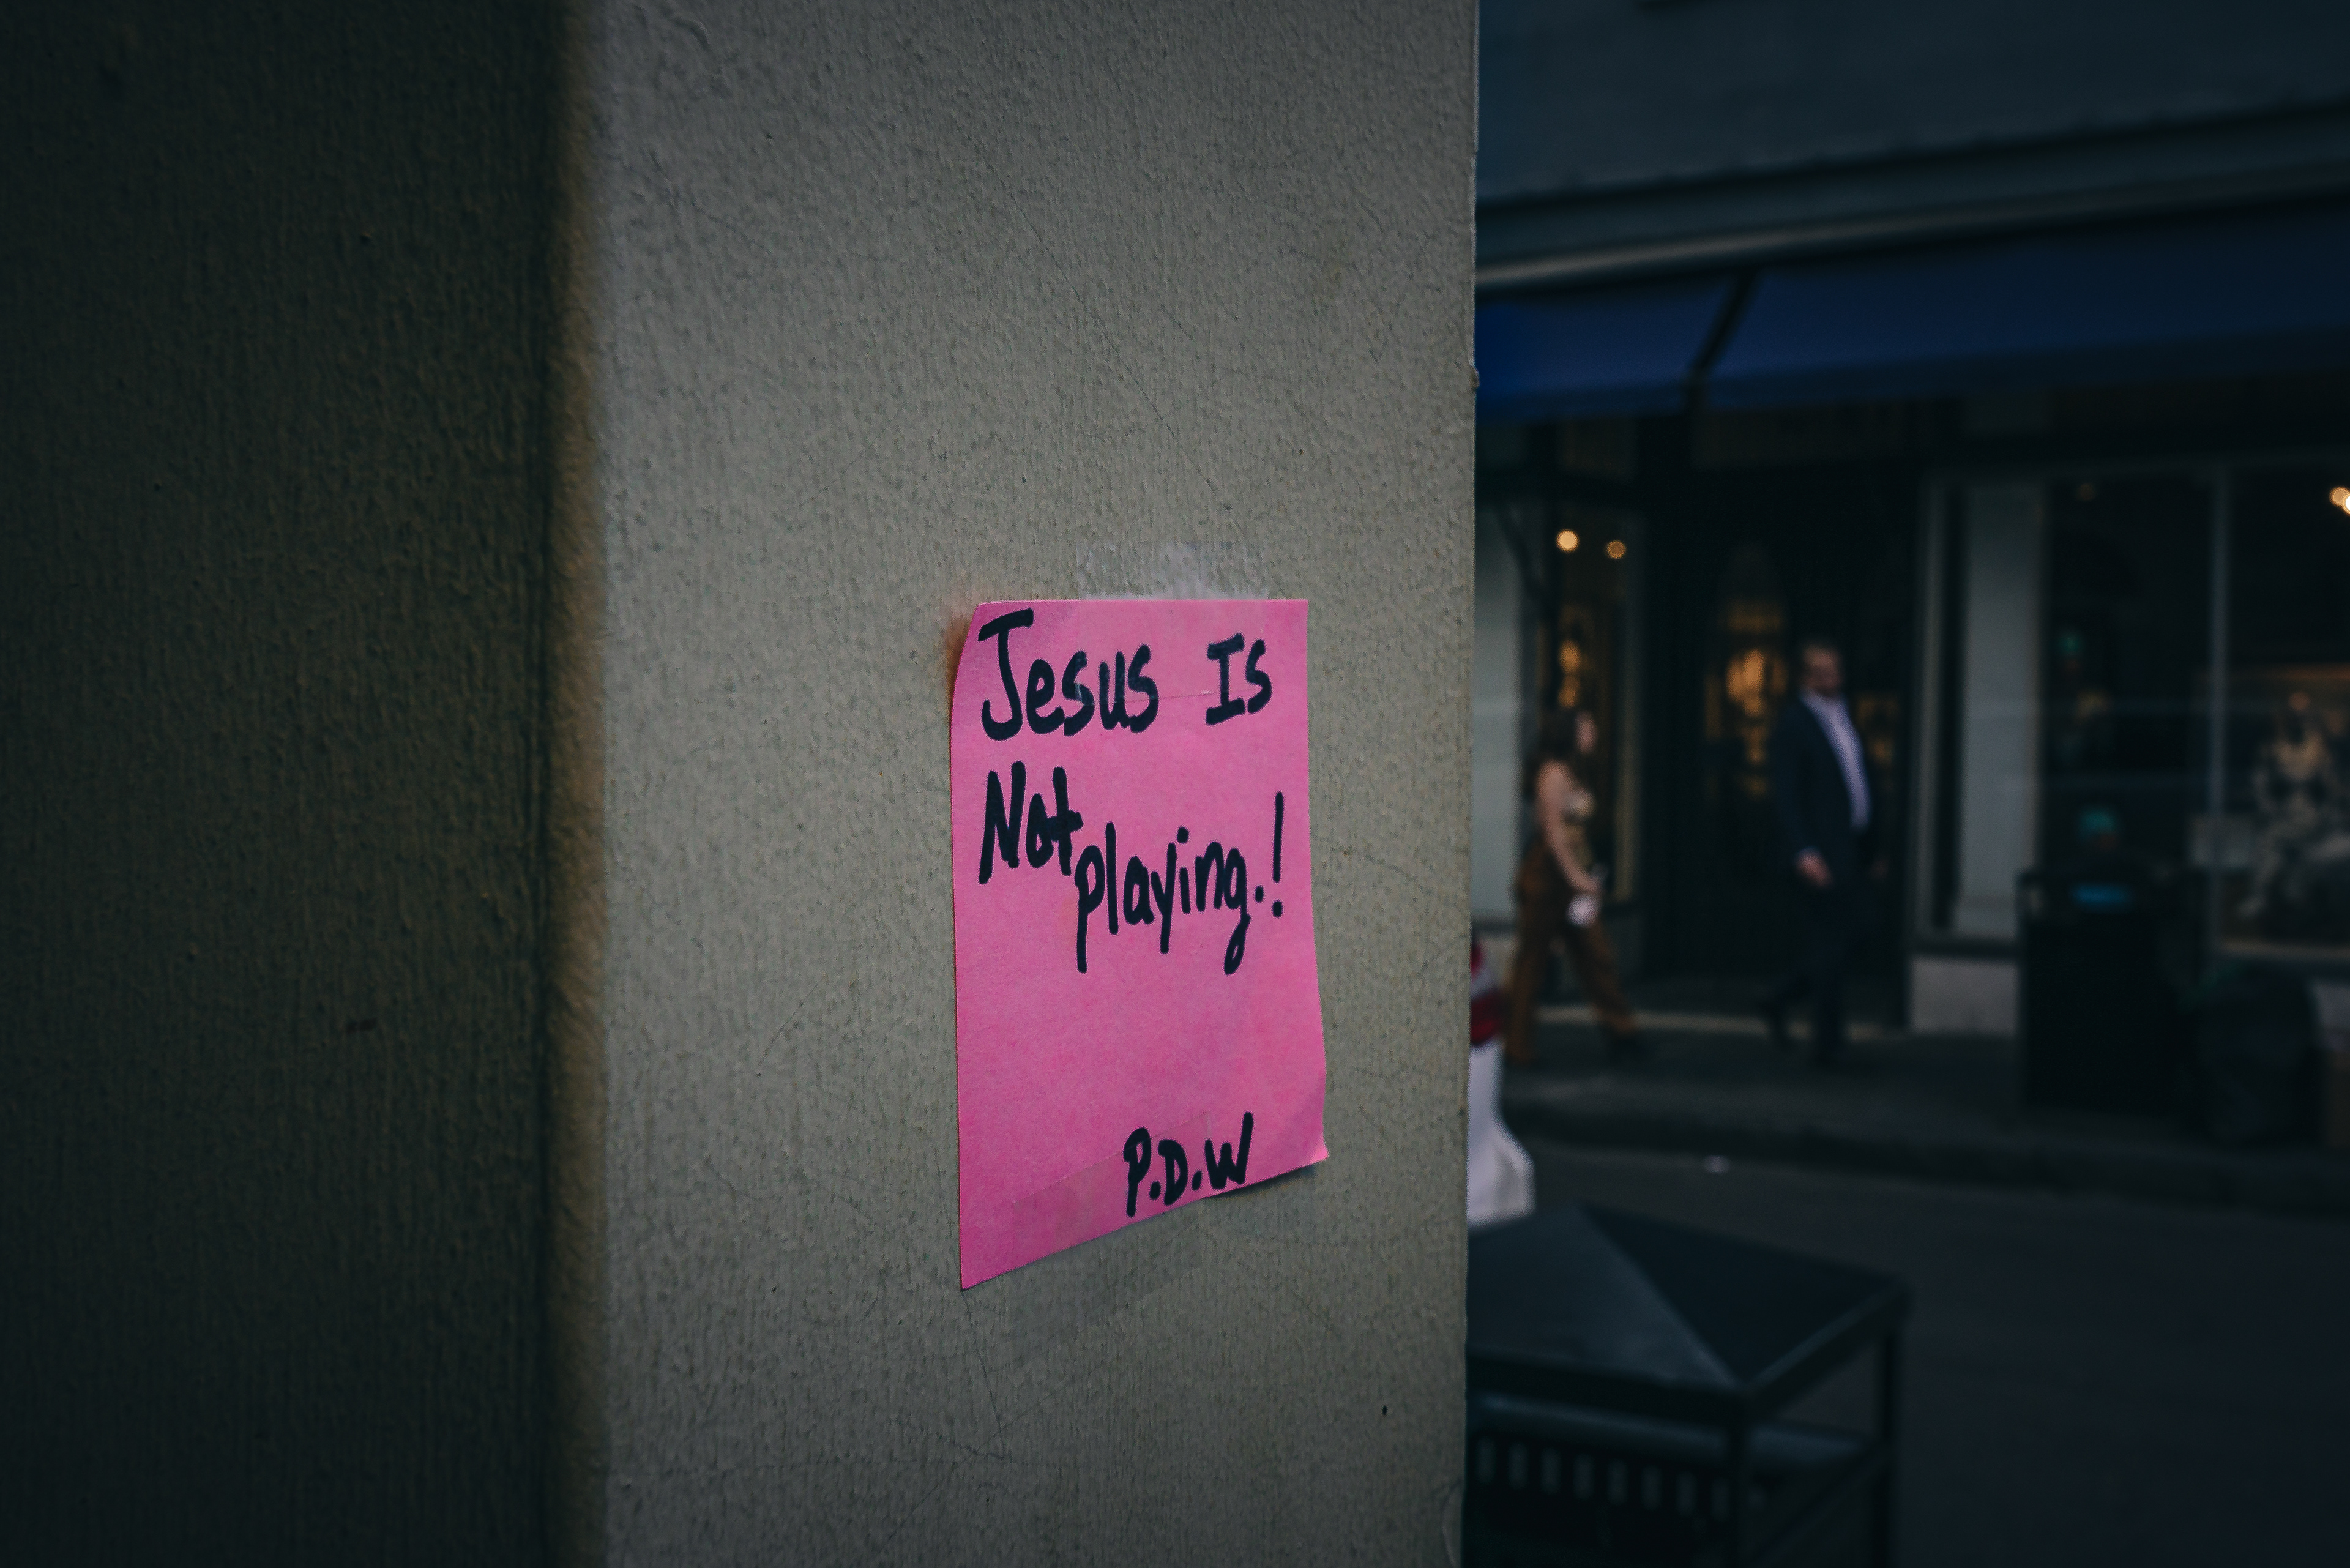 Jesus Is
Not playing.!
P.D.W